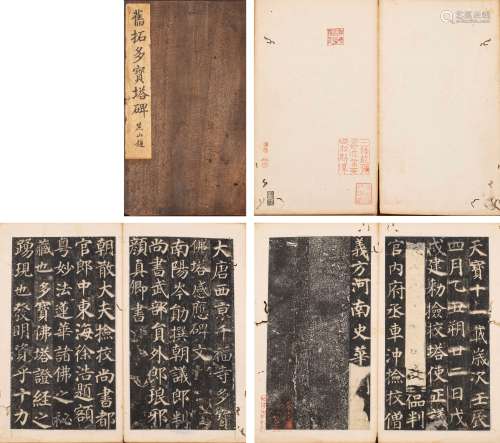 舊拓多寶塔碑
大唐西京千福寺多寶
佛塔感應碑文
南陽岑勛撰朝議郎判
尚書武部員外郎琅邪
顏真卿書
朝散大夫撿挍尚書都
官郎中東海徐浩題額
粵妙法蓮華諸佛之秘
藏也多寶佛塔證經之
踴現也發明資乎十力
天寶十一載歲次壬辰
四月乙丑朔廿二日戊
戌建勑撿挍塔使正議
判
官內府丞車沖撿挍僧
義方河南史華